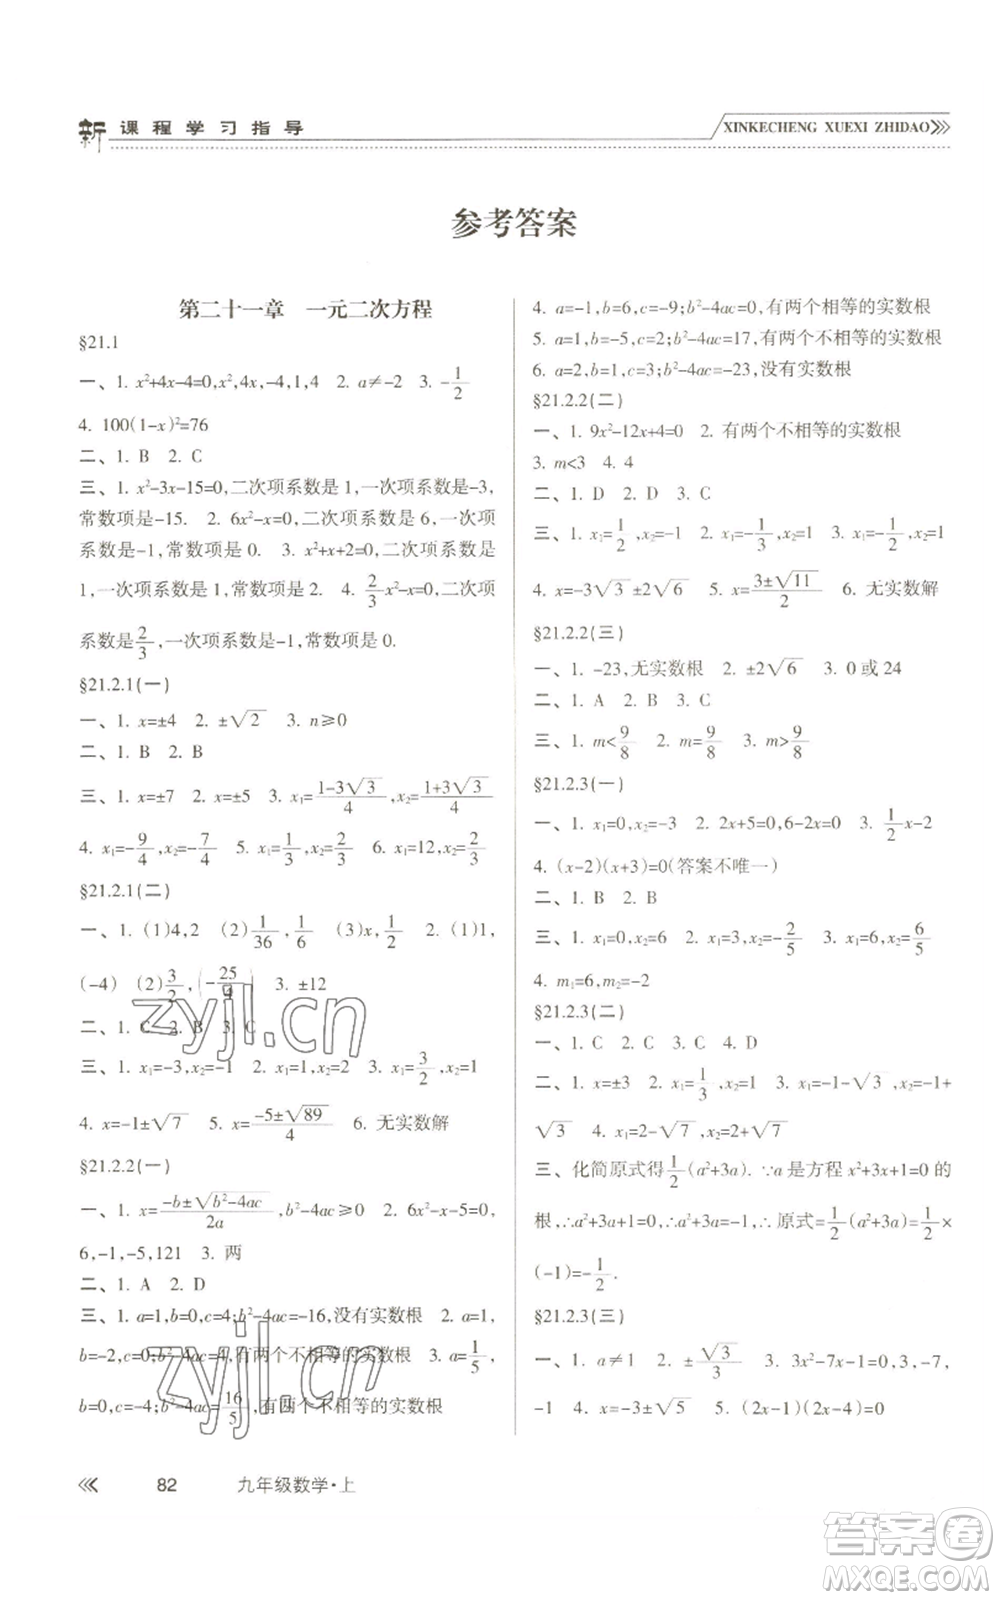 新课程学习指导
XINKECHENG XUEXI ZHIDAO
参考答案
第二十一章 一元二次方程
§21.1
一、1. x²+4x-4=0,x²,4x,-4,1,4 2. a≠-2 3. -1/2
4. 100(1-x)²=76
二、1. B 2. C
三、1. x²-3x-15=0,二次项系数是1,一次项系数是-3,
常数项是-15. 2. 6x²-x=0,二次项系数是6,一次项
系数是-1,常数项是0. 3. x²+x+2=0,二次项系数是
1,一次项系数是1,常数项是2. 4. 2/3x²-x=0,二次项
系数是2/3,一次项系数是-1,常数项是0.
§21.2.1(一)
一、1. x=±4 2. ±√2 3. n≥0
二、1. B 2. B
三、1. x=±7 2. x=±5 3. x₁=(1-3√3)/4,x₂=(1+3√3)/4
4. x₁=-9/4,x₂=-7/4 5. x₁=1/3,x₂=2/3 6. x₁=12,x₂=2
§21.2.1(二)
一、1. (1)4,2 (2)1/36,1/6 (3)x,1/2 2. (1)1,
(-4) (2)3/2,(-25/4) 3. ±12
二、1. C 2. B 3. C
三、1. x₁=-3,x₂=-1 2. x₁=1,x₂=2 3. x₁=3/2,x₂=1
4. x=-1±√7 5. x=(-5±√89)/4 6. 无实数解
§21.2.2(一)
一、1. x=(-b±√(b²-4ac))/2a,b²-4ac≥0 2. 6x²-x-5=0,
6,-1,-5,121 3. 两
二、1. A 2. D
三、1. a=1,b=0,c=4;b²-4ac=-16,没有实数根 2. a=1,
b=-2,c=0;b²-4ac=4,有两个不相等的实数根 3. a=1/5,
b=0,c=-4;b²-4ac=16/5,有两个不相等的实数根
4. a=-1,b=6,c=-9;b²-4ac=0,有两个相等的实数根
5. a=1,b=-5,c=2;b²-4ac=17,有两个不相等的实数根
6. a=2,b=1,c=3;b²-4ac=-23,没有实数根
§21.2.2(二)
一、1. 9x²-12x+4=0 2. 有两个不相等的实数根
3. m<3 4. 4
二、1. D 2. D 3. C
三、1. x₁=1/2,x₂=-1 2. x₁=-1/3,x₂=1 3. x₁=-1/2,x₂=1
4. x=-3√3±2√6 5. x=(3±√11)/2 6. 无实数解
§21.2.2(三)
一、1. -23,无实数根 2. ±2√6 3. 0或24
二、1. A 2. B 3. C
三、1. m<9/8 2. m=9/8 3. m>9/8
§21.2.3(一)
一、1. x₁=0,x₂=-3 2. 2x+5=0,6-2x=0 3. 1/2x-2
4. (x-2)(x+3)=0(答案不唯一)
二、1. B 2. B
三、1. x₁=0,x₂=6 2. x₁=3,x₂=-2/5 3. x₁=6,x₂=6/5
4. m₁=6,m₂=-2
§21.2.3(二)
一、1. C 2. C 3. C 4. D
二、1. x=±3 2. x₁=1/3,x₂=1 3. x₁=-1-√3,x₂=-1+
√3 4. x₁=2-√7,x₂=2+√7
三、化简原式得1/2(a²+3a). ∵a是方程x²+3x+1=0的
根,∴a²+3a+1=0,∴a²+3a=-1,∴原式=1/2(a²+3a)=1/2×
(-1)=-1/2.
§21.2.3(三)
一、1. a≠1 2. ±√3/3 3. 3x²-7x-1=0,3,-7,
-1 4. x=-3±√5 5. (2x-1)(2x-4)=0
82 九年级数学·上
zyjl.cn
zyjl.cn
答案圈
MXQE.COM